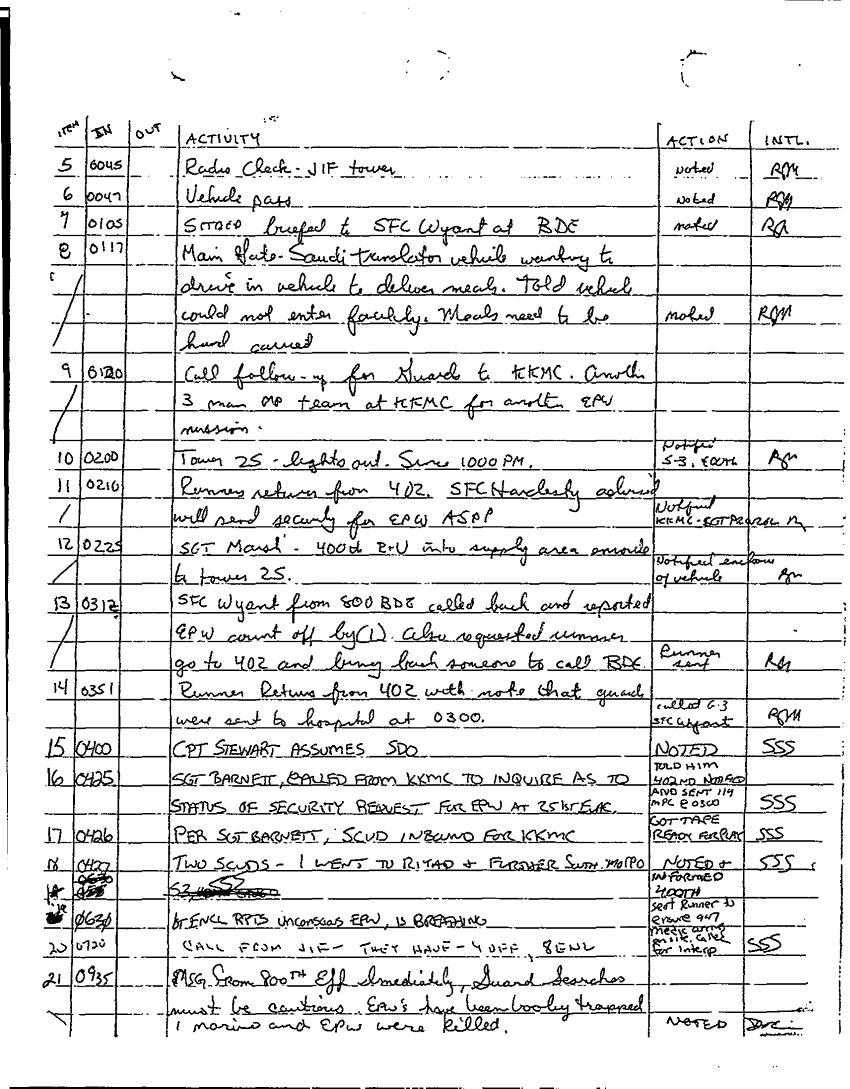 ITEM IN OUT ACTIVITY ACTION INTL.
5 0045 Radio Check - JIF tower noted RGM
6 0047 Vehicle pass Noted RGM
7 0105 SITREP briefed to SFC Wyant at BDE noted
8 0117 Main Gate - Saudi translator vehicle wanting to
drive in vehicle to deliver meals. Told vehicle
could not enter facility. Meals need to be noted RGM
hand carried
9 0120 Call follow-up for Guards to KKMC. Another
3 man MP team at KKMC for another EPW
mission.
10 0200 Tower 25 - lights out. Since 1000 PM. Notified S-3, 400th
11 0210 Runners return from 402. SFC Hardesty advised
will send security for EPW Notified KKMC - SGT
12 0225 SGT Marsh - 400th into supply area enroute
to tower 25. Notified enclosure of vehicle
13 0312 SFC Wyant from 800 BDE called back and reported
EPW count off by (1). Also requested runner
go to 402 and bring back someone to call BDE. Runner sent
14 0351 Runner Returns from 402 with note that guards
were sent to hospital at 0300. called G-3 SFC Wyant RGM
15 0400 CPT STEWART ASSUMES SDO NOTED SSS
16 0425 SGT BARNETT, CALLED FROM KKMC TO INQUIRE AS TO TOLD HIM 402ND NOTIFIED
STATUS OF SECURITY REQUEST FOR EPW AT AND SENT 114 MPC @ 0300 SSS
17 0426 PER SGT BARNETT, SCUD INBOUND FOR KKMC GOT TAPE READY FOR PLAY SSS
18 0427 TWO SCUDS - 1 WENT TO RIYAD & FURTHER SOUTH. NOTED & INFORMED 400TH SSS
19 0630 ENCL RPTS unconscious EPW, IS BREATHING sent Runner to ensure 947 medic
20 0720 CALL FROM JIF - THEY HAVE - 4 OFF, 8 ENL SSS
21 0935 MSG From 800TH Eff Immediately, Guard Searches
must be cautious. EPW's have been booby trapped
1 marine and EPW were killed. NOTED